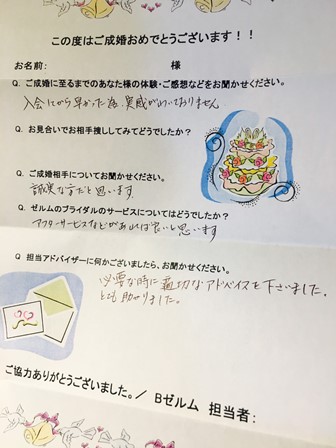 この度はご成婚おめでとうございます！！
お名前: 様
Q. ご成婚に至るまでのあなた様の体験・ご感想などをお聞かせください。
入会してから早かった為、実感がわいておりません。
Q. お見合いでお相手捜ししてみてどうでしたか？
Q. ご成婚相手についてお聞かせください。
誠実な方だと思います
Q. ゼルムのブライダルのサービスについてはどうでしたか？
アフターサービスなどがあれば良いと思います
Q 担当アドバイザーに何かございましたら、お聞かせください。
必要な時に適切なアドバイスを下さいました。
とても助かりました。
ご協力ありがとうございました。／ Bゼルム 担当者: